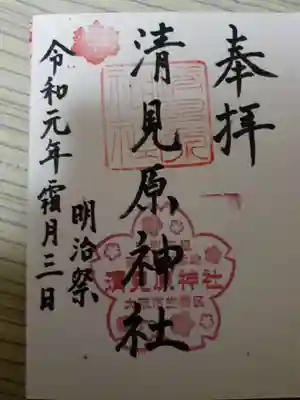 奉拝
清見原神社
明治祭
令和元年霜月三日
清見原神社